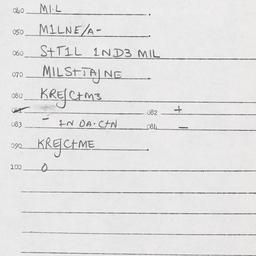 040 MI·L
050 MILNE/A-
060 S+T1L 1ND3 MIL
070 MILS++AJNE
080 KREJC+M3
082 +
083 - IN DA·C+N 084 -
090 KREJC+ME
100 0